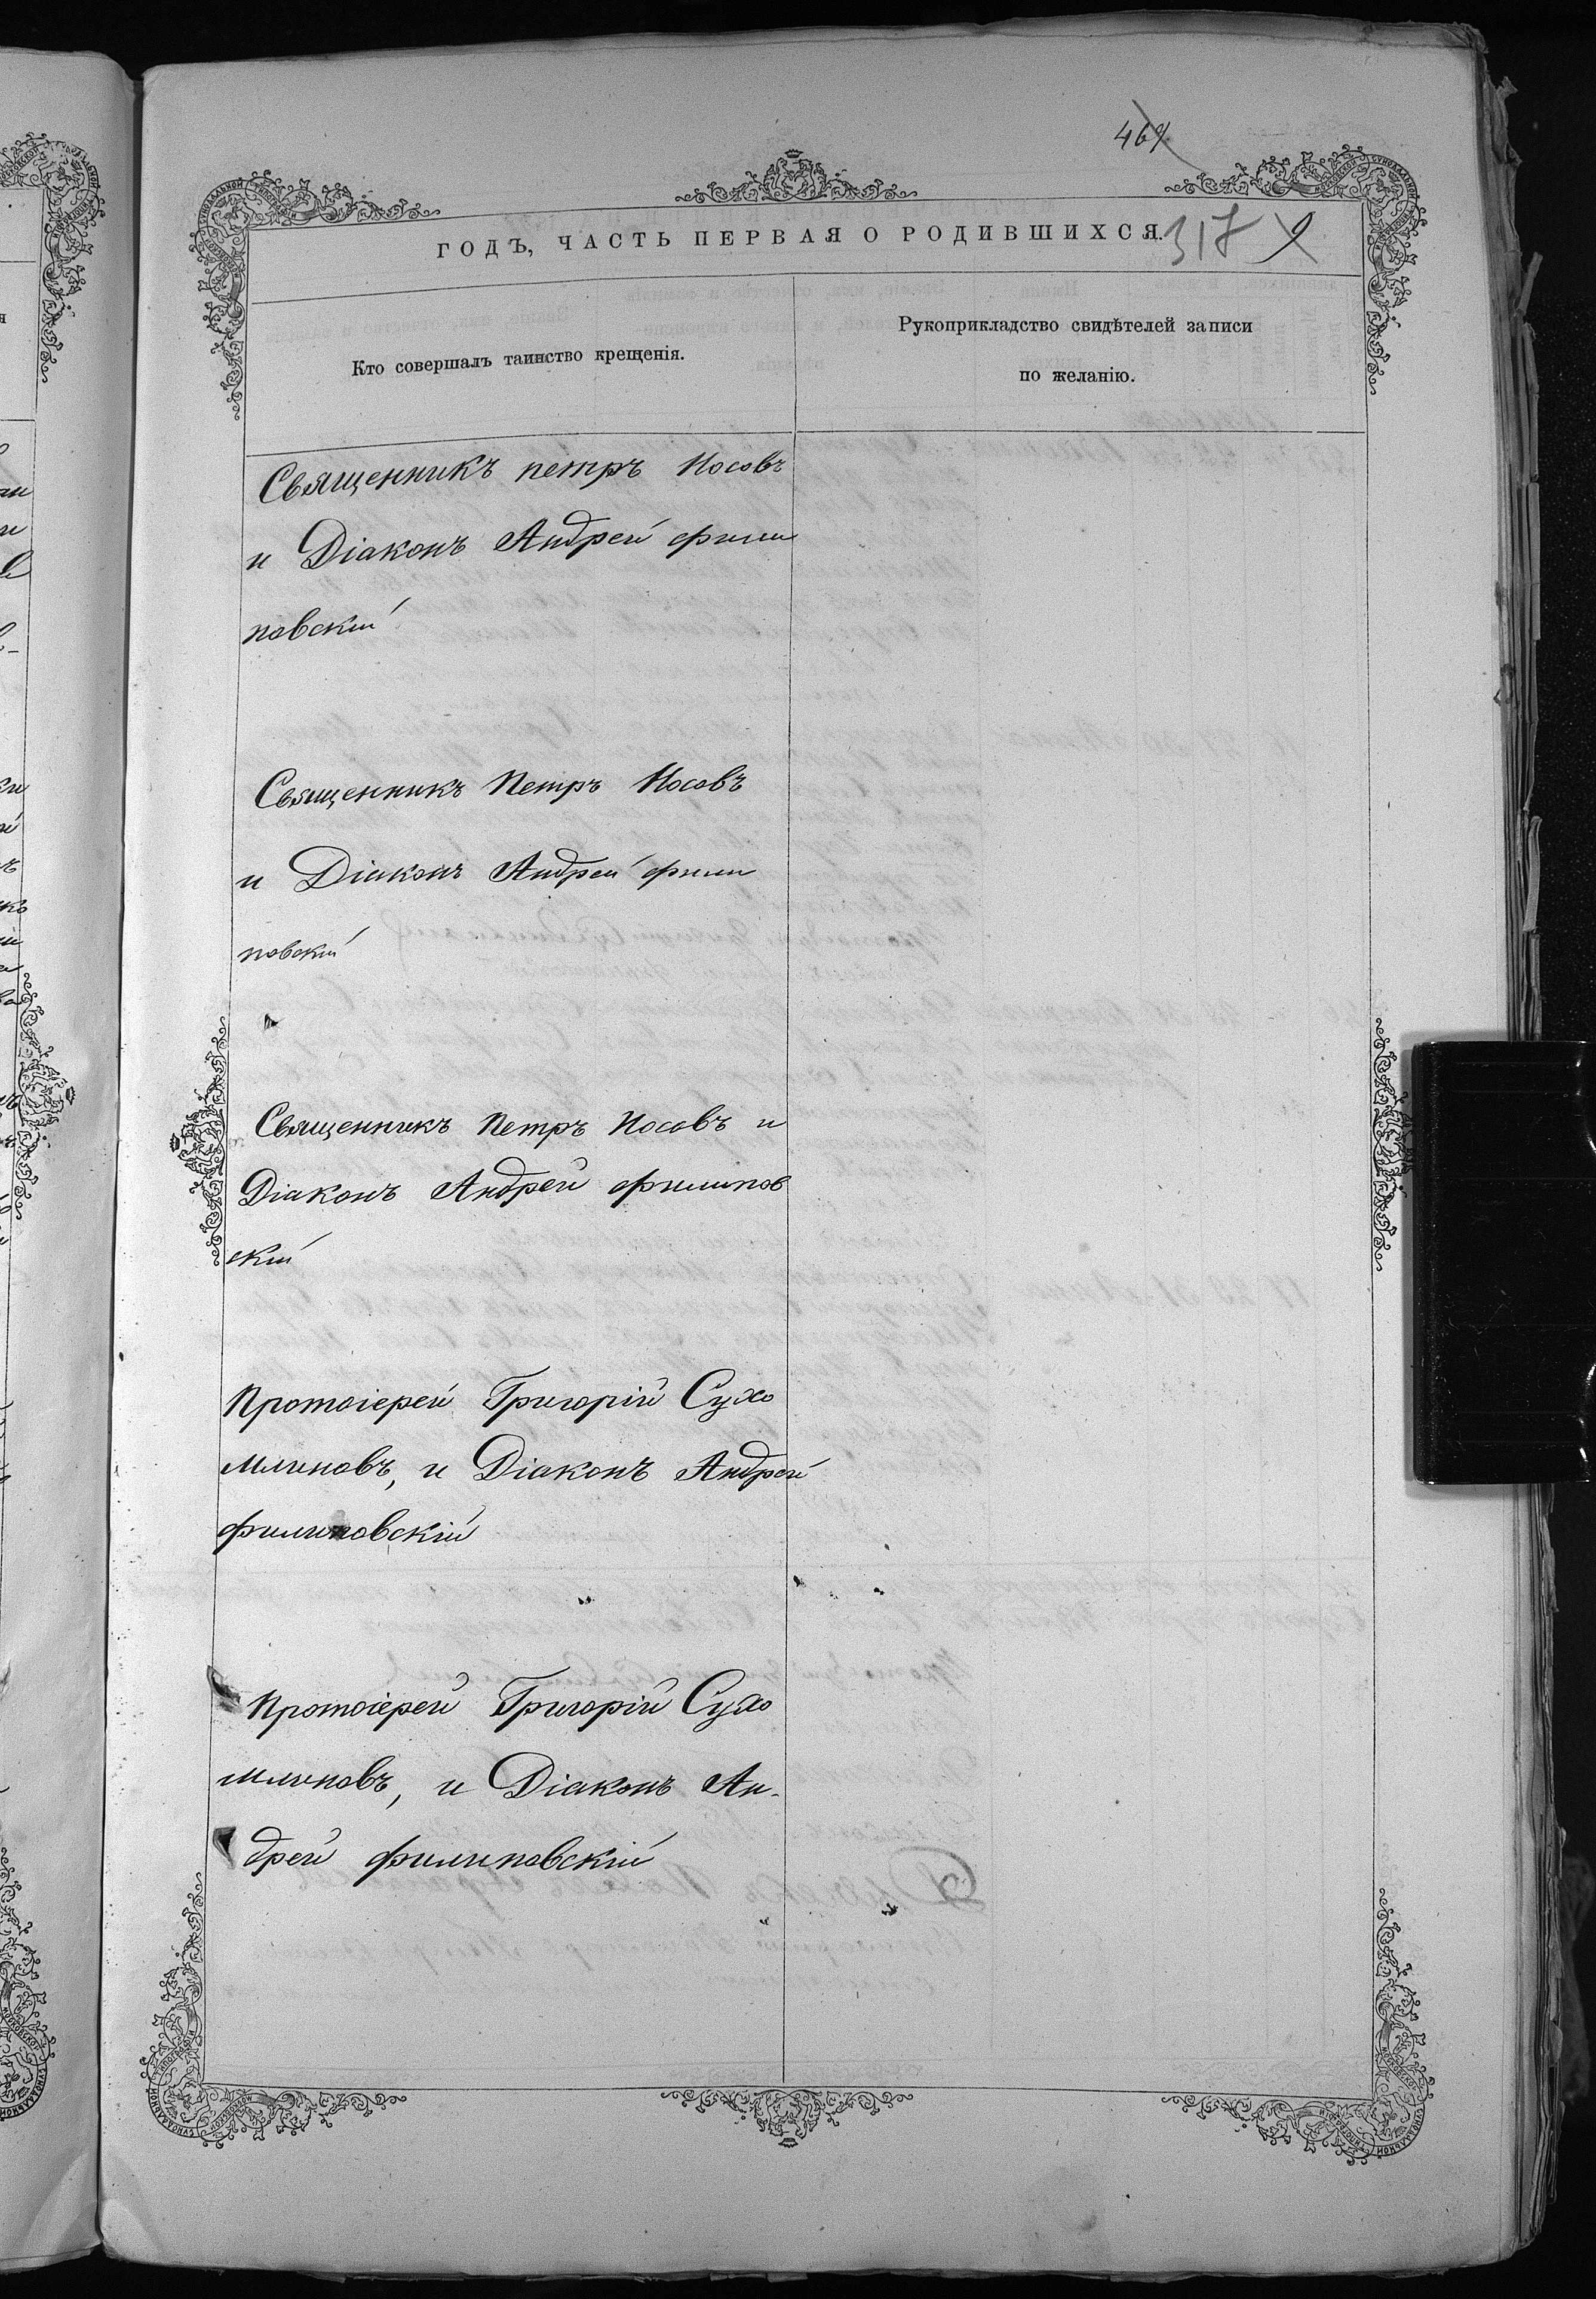 ГОДЪ, ЧАСТЬ ПЕРВАЯ О РОДИВШИХСЯ.
Кто совершалъ таинство крещенія.
Рукоприкладство свидѣтелей записи
по желанію.
Священникъ петръ Носовъ
и Діаконъ Андрей фили
повскій
Священникъ Петръ Носовъ
и Діаконъ Андрей фили
повскій
Священникъ Петръ Носовъ и
Діаконъ Андрей филипов
скій
Протоіерей Григорій Сухо
млиновъ, и Діаконъ Андрей
филиповскій
Протоіерей Григорій Сухо
млиновъ, и Діаконъ Ан-
дрей филиповскій